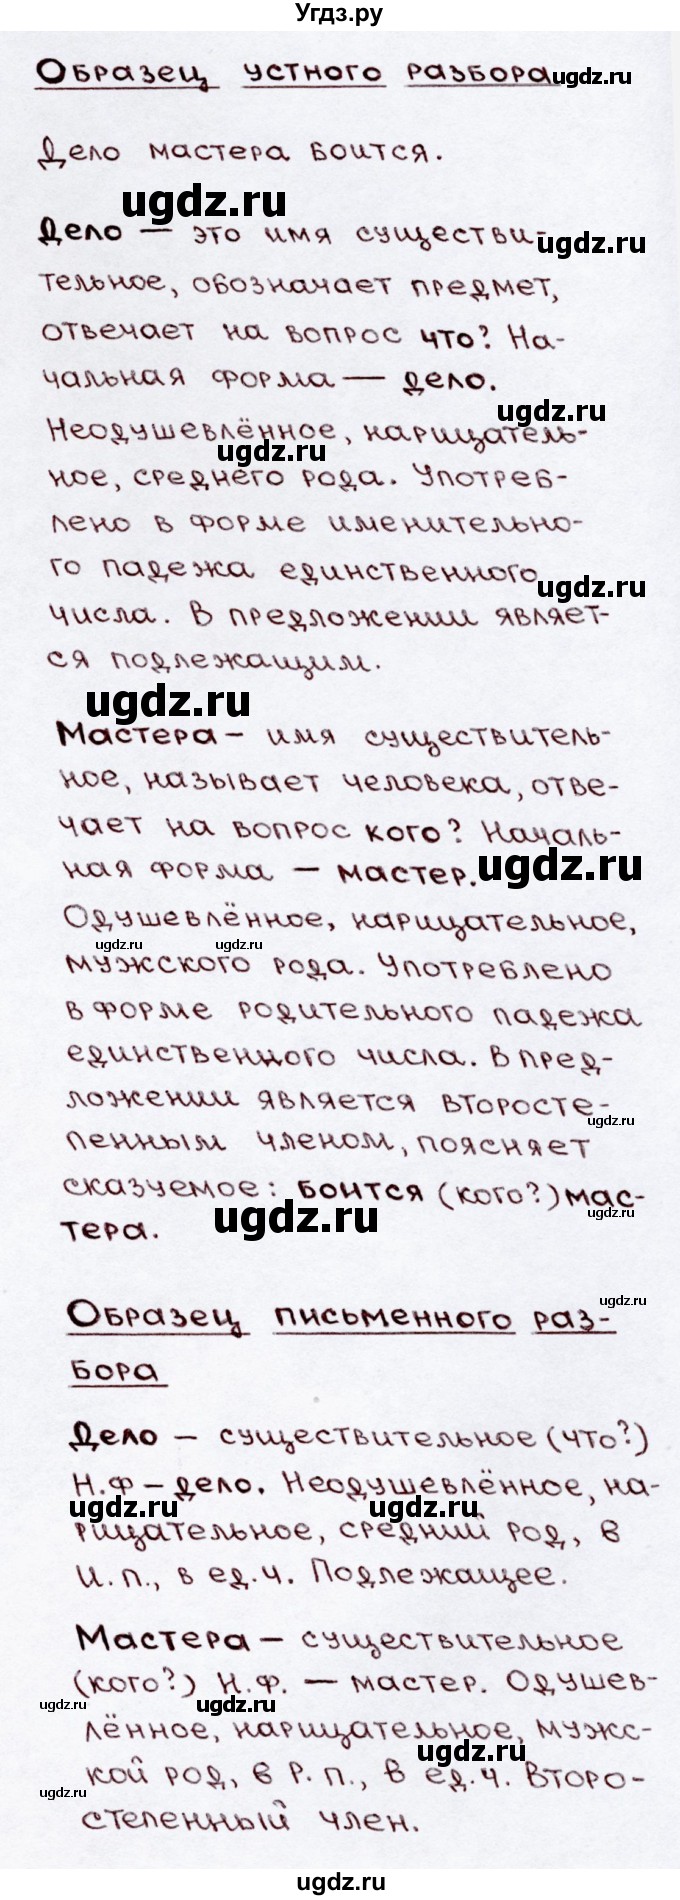 Угдз.ру
Образец устного разбора
ugdz.ru
Дело мастера боится.
ugdz.ru
Дело — это имя существи-
ugdz.ru
тельное, обозначает предмет,
отвечает на вопрос что? На-
чальная форма — дело.
ugdz.ru
Неодушевлённое, нарицатель-
ugdz.ru
ное, среднего рода. Употреб-
лено в форме именительно-
го падежа единственного
ugdz.ru
числа. В предложении являет-
ся подлежащим.
ugdz.ru
Мастера – имя существитель-
ное, называет человека, отве-
чает на вопрос кого? Началь-
ная форма – мастер.
ugdz.ru
Одушевлённое, нарицательное,
ugdz.ru ugdz.ru
мужского рода. Употреблено
в форме родительного падежа
единственного числа. В пред-
ложении является второсте-
ugdz.ru
пенным членом, поясняет
сказуемое: боится (кого?) мас-
ugdz.ru ugdz.ru
тера.
ugdz.ru
Образец письменного раз-
бора
Дело – существительное (что?)
Н.Ф – дело. Неодушевлённое, на-
ugdz.ru ugdz.ru
рицательное, средний род, в
И. п., в ед.ч. Подлежащее.
Мастера – существительное
(кого?) Н.Ф. — мастер. Одушев-
ugdz.ru ugdz.ru
лённое, нарицательное, мужс-
ugdz.ru
кой род, в Р. п., в ед.ч. Второ-
ugdz.ru
степенный член.
ugdz.ru